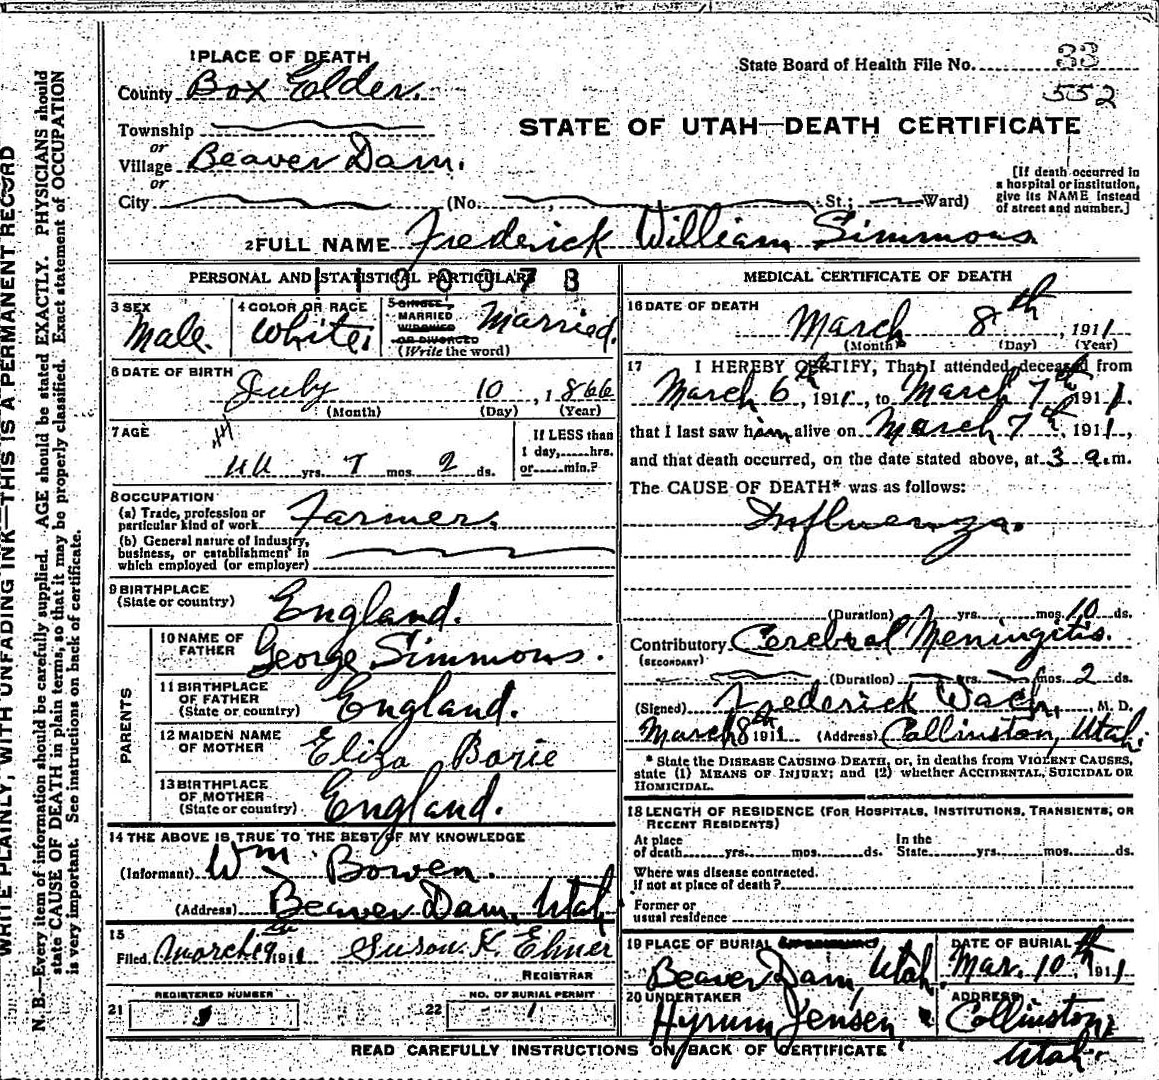 WRITE PLAINLY, WITH UNFADING INK—THIS IS A PERMANENT RECORD
N. B.—Every item of information should be carefully supplied. AGE should be stated EXACTLY. PHYSICIANS should
state CAUSE OF DEATH in plain terms, so that it may be properly classified. Exact statement of OCCUPATION
is very important. See instructions on back of certificate.
1 PLACE OF DEATH
State Board of Health File No. 33
552
County Box Elder.
STATE OF UTAH—DEATH CERTIFICATE
Township
or
Village Beaver Dam.
or
City (No. , St.; Ward)
[If death occurred in
a hospital or institution,
give its NAME instead
of street and number.]
2 FULL NAME Frederick William Simmons
PERSONAL AND STATISTICAL PARTICULARS
3 SEX
Male.
4 COLOR OR RACE
White.
5 SINGLE,
MARRIED
WIDOWED
OR DIVORCED
(Write the word)
Married.
6 DATE OF BIRTH
July 10, 1866
(Month) (Day) (Year)
7 AGE
44
44 yrs. 7 mos. 2 ds.
If LESS than
1 day,......hrs.
or......min.?
8 OCCUPATION
(a) Trade, profession or
particular kind of work Farmer.
(b) General nature of Industry,
business, or establishment in
which employed (or employer)
9 BIRTHPLACE
(State or country) England.
PARENTS
10 NAME OF
FATHER George Simmons.
11 BIRTHPLACE
OF FATHER
(State or country) England.
12 MAIDEN NAME
OF MOTHER Eliza Borie
13 BIRTHPLACE
OF MOTHER
(State or country) England.
14 THE ABOVE IS TRUE TO THE BEST OF MY KNOWLEDGE
(Informant) Wm. Bowen.
(Address) Beaver Dam, Utah
15
Filed March 1911 Suson. K.
REGISTRAR
REGISTERED NUMBER
21
NO. OF BURIAL PERMIT
22 1
MEDICAL CERTIFICATE OF DEATH
16 DATE OF DEATH
March 8th, 1911
(Month) (Day) (Year)
17 I HEREBY CERTIFY, That I attended deceased from
March 6th, 1911, to March 7th 1911.
that I last saw him alive on March 7th, 1911,
and that death occurred, on the date stated above, at 3 a.m.
The CAUSE OF DEATH* was as follows:
Influenza.
(Duration) yrs. mos. 10 ds.
Contributory Cerebral Meningitis.
(SECONDARY)
(Duration) yrs. mos. 2 ds.
(Signed) Frederick Wach, M. D.
March 8th 1911 (Address) Collinston, Utah.
* State the DISEASE CAUSING DEATH, or, in deaths from VIOLENT CAUSES,
state (1) MEANS OF INJURY; and (2) whether ACCIDENTAL, SUICIDAL OR
HOMICIDAL.
18 LENGTH OF RESIDENCE (FOR HOSPITALS, INSTITUTIONS, TRANSIENTS, OR
RECENT RESIDENTS)
At place
of death......yrs......mos......ds.
In the
State......yrs......mos......ds.
Where was disease contracted.
if not at place of death?
Former or
usual residence
19 PLACE OF BURIAL
Beaver Dam, Utah.
DATE OF BURIAL
Mar. 10th, 1911
20 UNDERTAKER
Hyrum Jensen.
ADDRESS
Collinston,
Utah.
READ CAREFULLY INSTRUCTIONS ON BACK OF CERTIFICATE